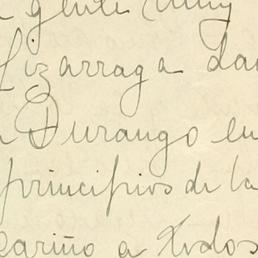 gente muy
Lizarraga dan
a Durango en
principios de la
cariño a todos